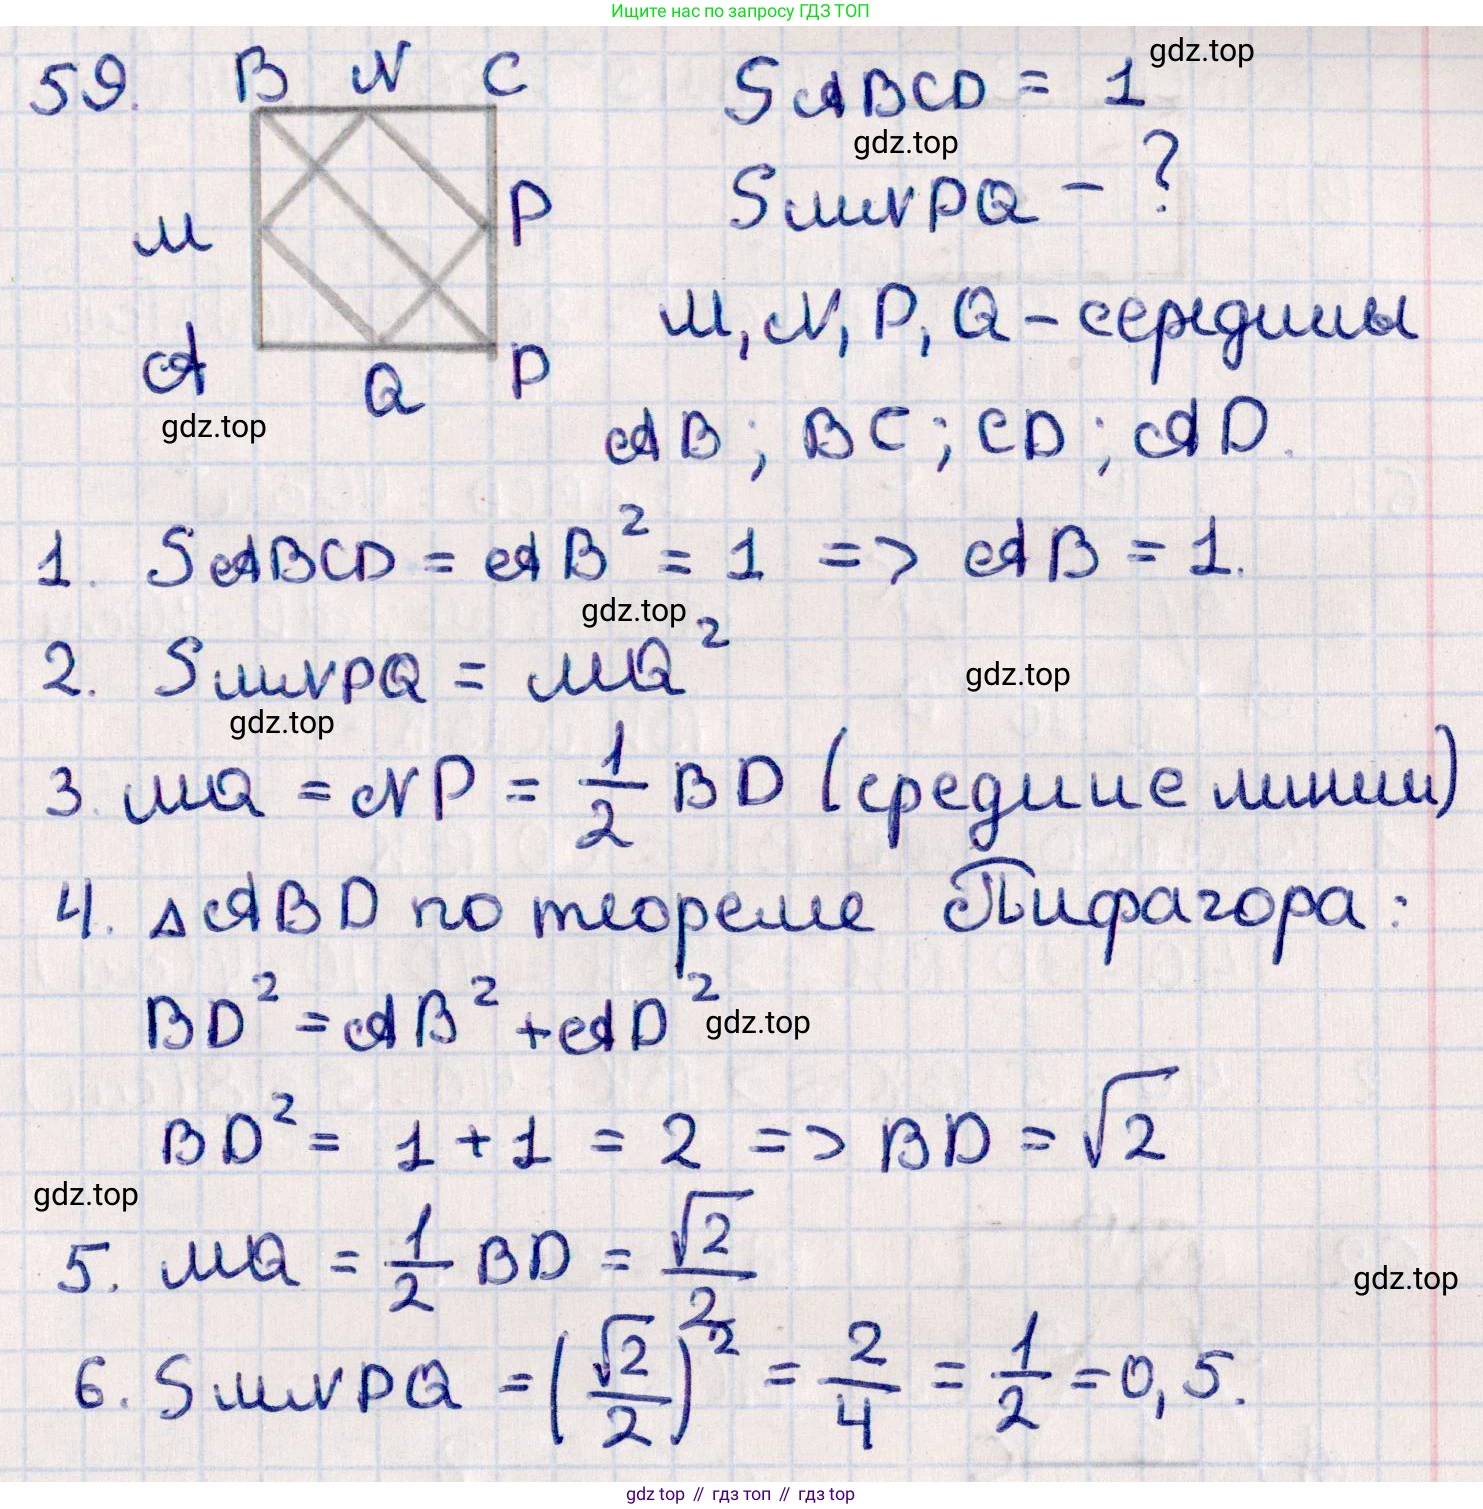 Ищите нас по запросу ГДЗ ТОП
59. B N C SABCD = 1 gdz.top
gdz.top
M P SMNPQ - ?
M, N, P, Q - середины
A Q P
gdz.top AB; BC; CD; AD.
1. SABCD = AB² = 1 => AB = 1.
gdz.top
2. SMNPQ = MQ² gdz.top
gdz.top
3. MQ = NP = 1/2 BD (средние линии)
4. △ABD по теореме Пифагора:
BD² = AB² + AD² gdz.top
BD² = 1 + 1 = 2 => BD = √2
gdz.top
5. MQ = 1/2 BD = √2/2 gdz.top
6. SMNPQ = (√2/2)² = 2/4 = 1/2 = 0,5.
gdz top // гдз топ // гдз top